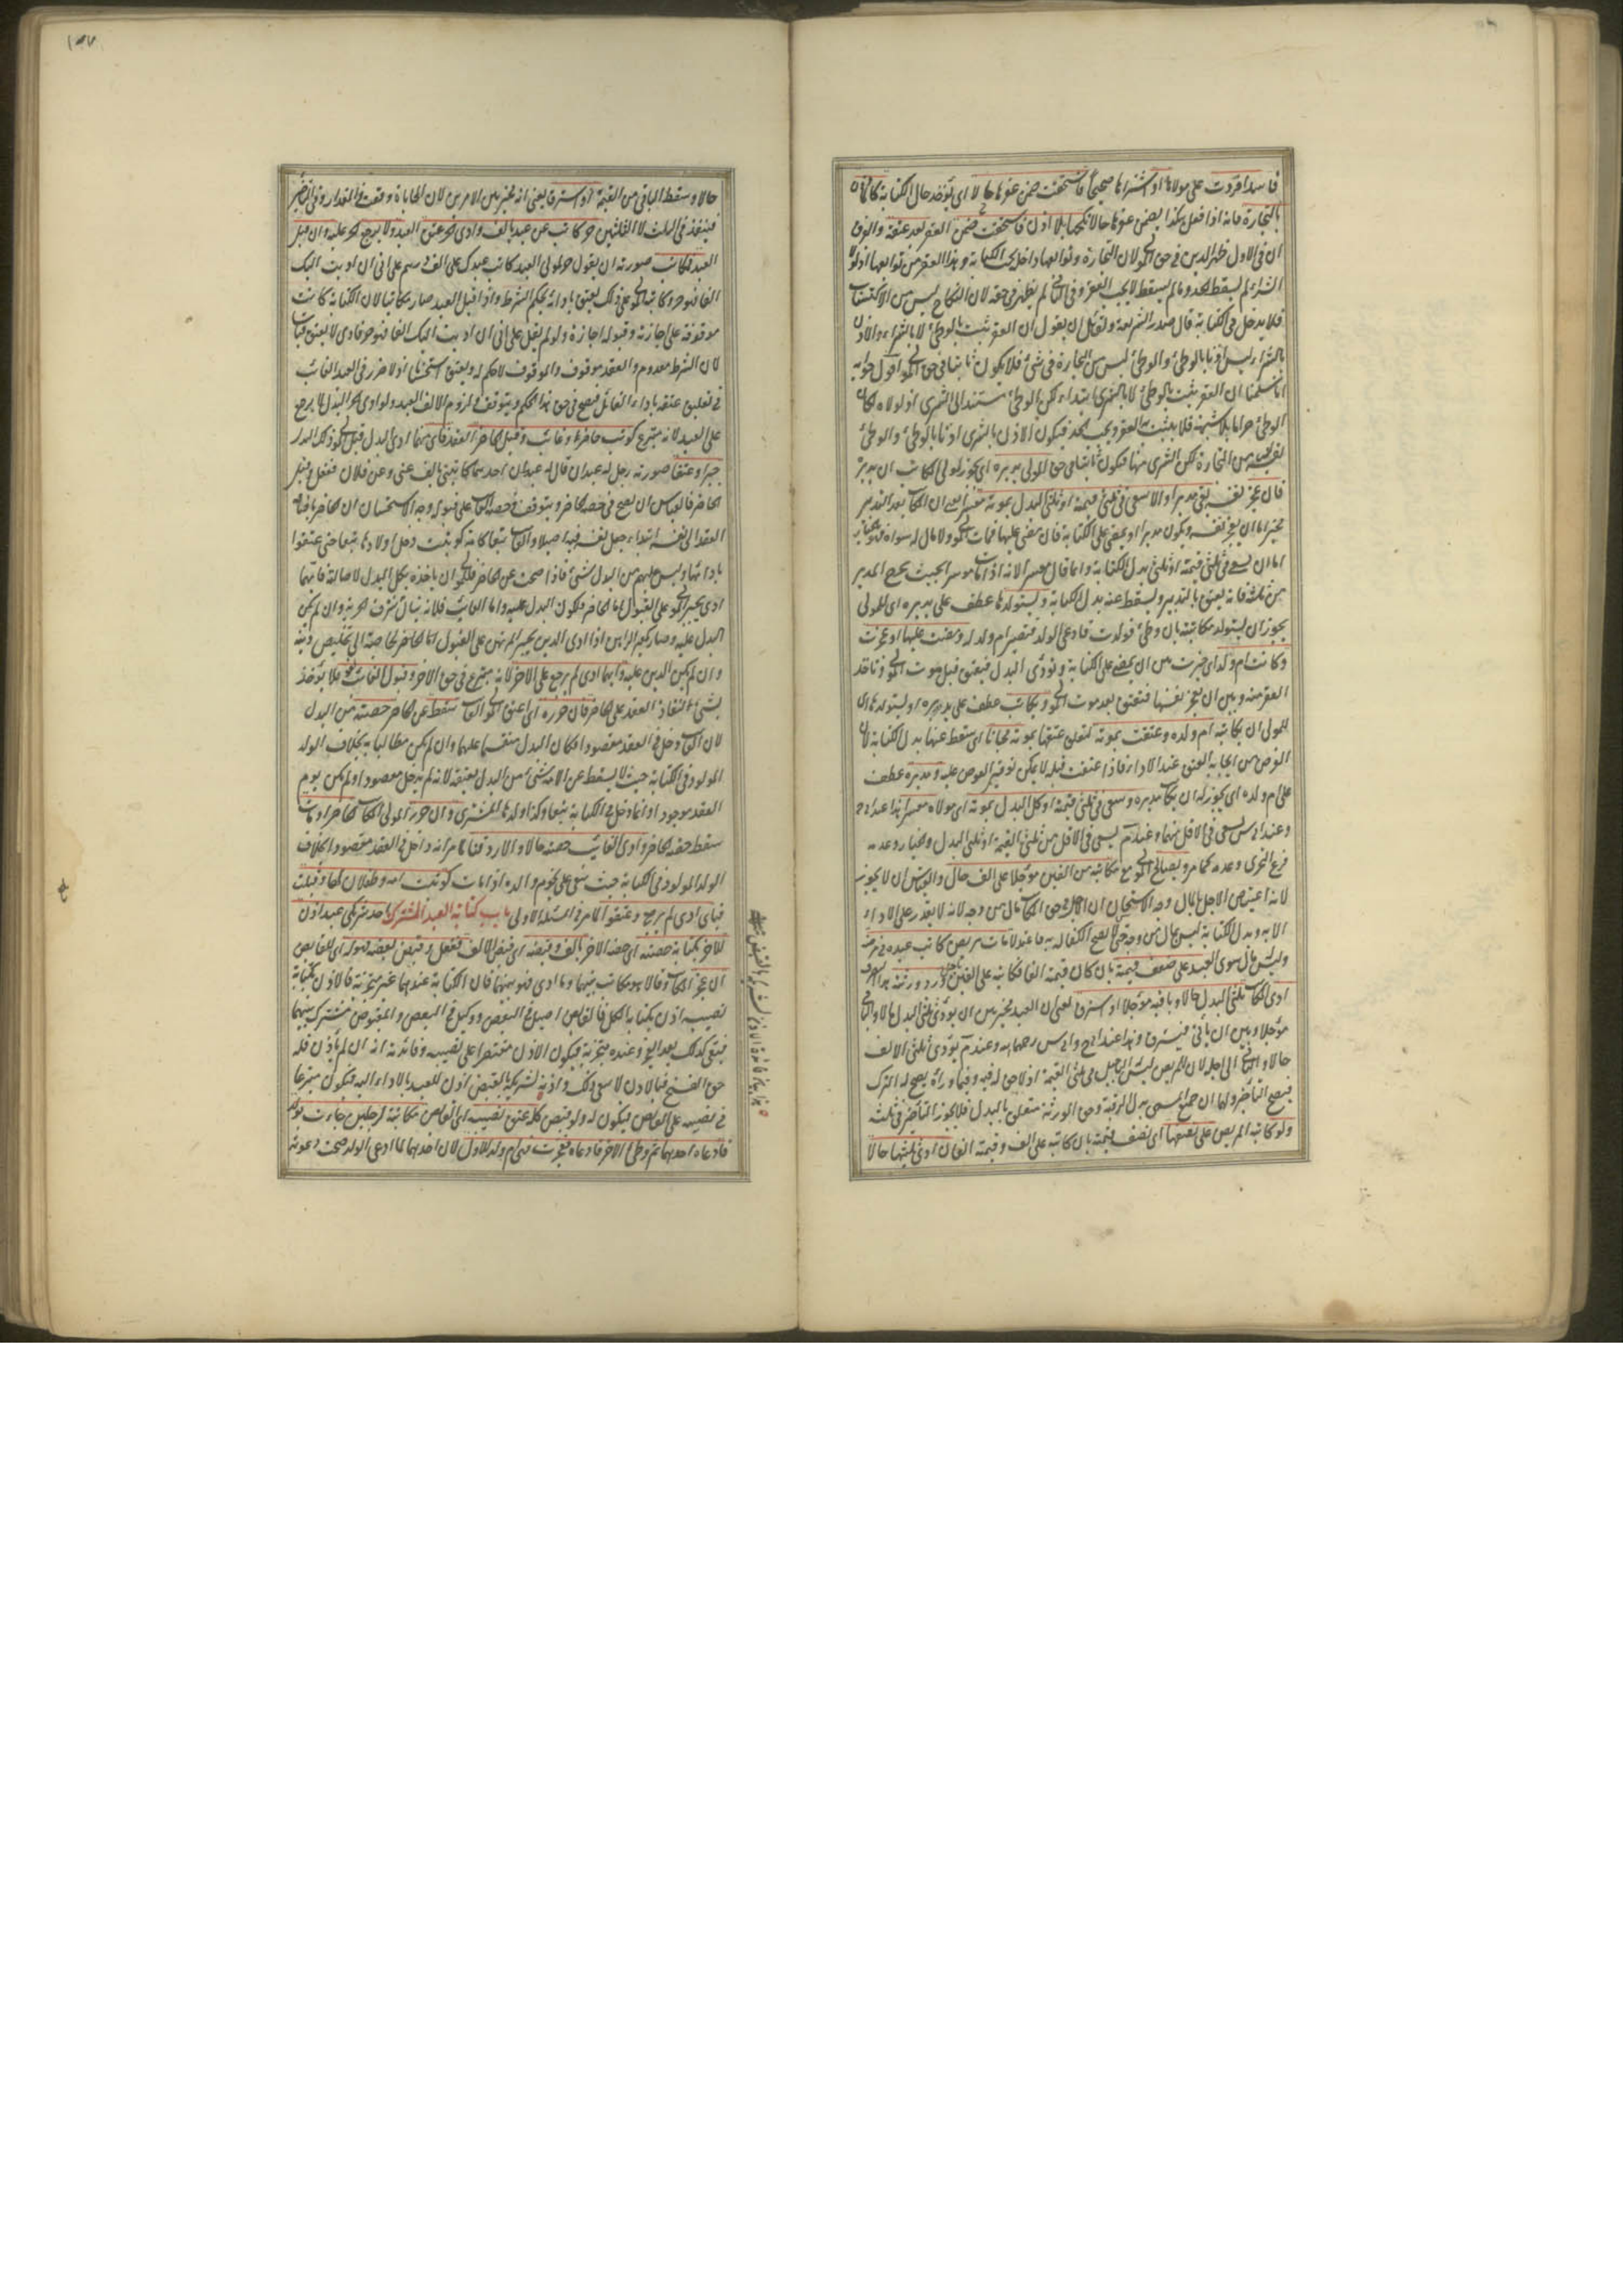 فاسدا فردت على مولاها او اشتراها صحيحا فاستحقت ضمن عقرها حالا اى يؤخذ حال الكتابة كالمأذون
بالتجارة فانه اذا فعل هكذا يضمن عقرها حالا نكحها بلا اذن فاستحقت ضمن العقر بعد عتقه والفرق
ان فى الاول ظهر الدين فى حق المولى لان التجارة وتوابعها داخل تحت الكتابة وهذا العقر من توابعها اذ لولا
الشراء لم يسقط الحد وما لم يسقط لا يجب العقر وفى الثانى لم يظهر فى حقه لان النكاح ليس من الاكتساب
فلا يدخل فى الكتابة قال صدر الشريعة ولقائل ان يقول ان العقر يثبت بالوطئ لا بالشراء والاذن
بالشراء ليس اذنا بالوطئ والوطئ ليس من التجارة فى شئ فلا يكون ثابتا فى حق المولى اقول جوابه
انا سلمنا ان العقر يثبت بالوطئ لا بالشرى ابتداء لكن الوطئ مستند الى الشرى اذ لولاه لكان
الوطئ حراما بلا شبهة فلا يثبت به العقر ويجب الحد فيكون الاذن بالشرى اذنا بالوطئ والوطئ
نفسه ليس من التجارة لكن الشرى منها فيكون ثابتا فى حق المولى يدبره اى يجوز لمولى المكاتب ان يدبره
فان عجز نفسه بقى مدبرا والا سعى فى ثلثى قيمته او ثلثى البدل بموته معسرا يعنى ان المكاتب بعد التدبير
مخير اما ان يعجز نفسه ويكون مدبرا او يمضى على الكتابة فان مضى عليها فمات المولى ولا مال له سواه فهو بالخيار
اما ان يسعى فى ثلثى قيمته او ثلثى بدل الكتابة وانما قال معسرا لانه اذا مات موسرا بحيث يخرج المدبر
من ثلثه فانه يعتق بالتدبير ويسقط عنه بدل الكتابة ويستولدها عطف على يدبره اى للمولى
يجوز ان يستولد مكاتبته بان وطئ فولدت فادعى الولد فتصير ام ولد له ومضت عليها او عجزت
وكانت ام ولد اى خيرت بين ان يمضى على الكتابة وتؤدى البدل فيعتق قبل موت المولى وتأخذ
العقر منه وبين ان تعجز نفسها فتعتق بعد موت المولى ويكاتب عطف على يدبره او يستولدها اى
للمولى ان يكاتب ام ولده وعتقت بموته لتعلق عتقها بموته مجانا اى سقط عنها بدل الكتابة لان
الغرض من ايجابه العتق عند الاداء فاذا عتقت قبله لا يمكن توفير الغرض عليه ومدبره عطف
على ام ولده اى يجوز له ان يكاتب مدبره وسعى فى ثلثى قيمته او كل البدل بموته اى مولاه معسرا هذا عند ابى ح
وعند ابى س يسعى فى الاقل منهما وعند م يسعى فى الاقل من ثلثى القيمة او ثلثى البدل والخيار وعدمه
فرع التجزى وعدمه كما مر ويصالح المولى مع مكاتبه من الفين مؤجلا على الف حال والقياس ان لا يجوز
لانه اعتياض الاجل بالمال وجه الاستحسان ان الاجل فى حق المكاتب مال من وجه لانه لا يقدر على الاداء
الا به وبدل الكتابة ليس بمال من وجه حتى لا يصح الكفالة به فاعتدلا مات مريض كاتب عبده فى مرضه
وليس مال سوى العبد على ضعف قيمته بان كان قيمته الفا فكاتبه على الفين باجل ورد ورثته هذا التصرف
ادى المكاتب ثلثى البدل حالا وباقيه مؤجلا او استرق يعنى ان العبد مخير بين ان يؤدى ثلثى البدل حالا والباقى
مؤجلا وبين ان يأبى فيسترق وهذا عند ابى ح وابى س رحمهما الله وعند م يؤدى ثلثى الالف
حالا والباقى الى اجله لان المريض ليس له التأجيل فى ثلثى القيمة اذ لا حق له فيه وفيما وراءه يصح له الترك
فيصح التأخير ولهما ان جميع المسمى بدل الرقبة وحق الورثة متعلق بالبدل فلا يجوز التأخير فى ثلثه
ولو كاتبه المريض على نصفها اى نصف قيمته بان كاتبه على الف وقيمته الفان ادى ثلثيها حالا
حالا وسقط الباقى من القيمة او استرق يعنى انه مخير بين الامرين لان المحاباة وقعت فى المقدار وفى التأخير
فينفذ فى الثلث لا الثلثين حر كاتب عن عبد بالف وادى الحر عتق العبد ولا يرجع الحر عليه وان قبل
العبد فمكاتب صورته ان يقول حر لمولى العبد كاتب عبدك على الف درهم على انى ان اديت اليك
الفا فهو حر وكاتبه المولى على ذلك يعتق بادائه بحكم الشرط واذا قبل العبد صار مكاتبا لان الكتابة كانت
موقوفة على اجازته وقبوله اجازة ولو لم يقل على انى ان اديت اليك الفا فهو حر فادى لا يعتق قياسا
لان الشرط معدوم والعقد موقوف والموقوف لا حكم له ويعتق استحسانا اذ لا ضرر فى العبد الغائب
فى تعليق عتقه باداء القائل فيصح فى حق هذا الحكم ويتوقف فى لزوم الالف العبد ولو ادى الحر البدل لا يرجع
على العبد لانه متبرع كوتب حاضر وغائب وقبل الحاضر العقد فاى منهما ادى البدل قبل المولى ذلك البدل
جبرا وعتقا صورته رجل له عبدان قال له عبد ان احدهما كاتبنى بالف عنى وعن فلان ففعل وقبل
الحاضر فالقياس ان يصح فى حصة الحاضر ويتوقف فى حصة الغائب على قبوله وجه الاستحسان ان الحاضر باضافة
العقد الى نفسه ابتداء جعل نفسه فيه اصيلا والغائب تبعا كامة كوتبت دخل اولادها تبعا حتى عتقوا
بادائها وليس عليهم من البدل شئ فاذا صحت عن الحاضر فللمولى ان يأخذه بكل البدل لاصالته فايهما
ادى يجبر المولى على القبول اما الحاضر فلكون البدل عليه واما الغائب فلانه ينال شرف الحرية وان لم يكن
البدل عليه وصار كمعير الرهن اذا ادى الدين يجبر المرتهن على القبول لحاجته الى تخليص عينه
وان لم يكن الدين عليه وايهما ادى لم يرجع على الاخر لانه متبرع فى حق الاخر وقبول الغائب لغو فلا يؤخذ
بشئ لنفاذ العقد على الحاضر فان حرره اى اعتق المولى الغائب سقط عن الحاضر حصته من البدل
لان الغائب دخل فى العقد مقصودا فكان البدل منقسما عليهما وان لم يكن مطالبا به بخلاف الولد
المولود فى الكتابة حيث لا يسقط عن الامة شئ من البدل بعتقه لانه لم يدخل مقصودا ولم يكن يوم
العقد موجودا وانما دخل فى الكتابة تبعا وكذا ولدها المشترى وان حرر المولى المكاتب الحاضر او مات
سقط حصة الحاضر وادى الغائب حصته حالا والا رد قنا لما مر انه داخل فى العقد مقصودا بخلاف
الولد المولود فى الكتابة حيث بقى على نجوم والده اذا مات كوتبت امة وطفلان لها وقبلت
فباى ادى لم يرجع وعتقوا لما مر فى المسئلة الاولى باب كتابة العبد المشترك احد شريكى عبد اذن
للاخر بكتابة حصته اى حصة الاخر بالف وقبضه اى قبض الالف ففعل وقبض بعضه فهو له اى للقابض
ان عجز المكاتب وقالا هو مكاتب بينهما وما ادى فهو بينهما فان الكتابة عندهما غير متجزئة فالاذن بكتابة
نصيبه اذن بكتابة الكل فالقابض اصيل فى البعض ووكيل فى البعض والمقبوض مشترك بينهما
فبقى كذلك بعد العجز وعنده متجزئة فيكون الاذن مقتصرا على نصيبه وفائدته انه ان لم يأذن فله
حق الفسخ فبالاذن لا يبقى ذلك واذنه لشريكه بالقبض اذن للعبد بالاداء اليه فيكون متبرعا
فى نصيبه على القابض فيكون له ولو قبض كله عتق نصيبه اى القابض مكاتبة لرجلين جاءت بولد
فادعاه احدهما ثم وطئ الاخر فادعاه فعجزت فهى ام ولد للاول لان احدهما لما ادعى الولد صحت دعوته